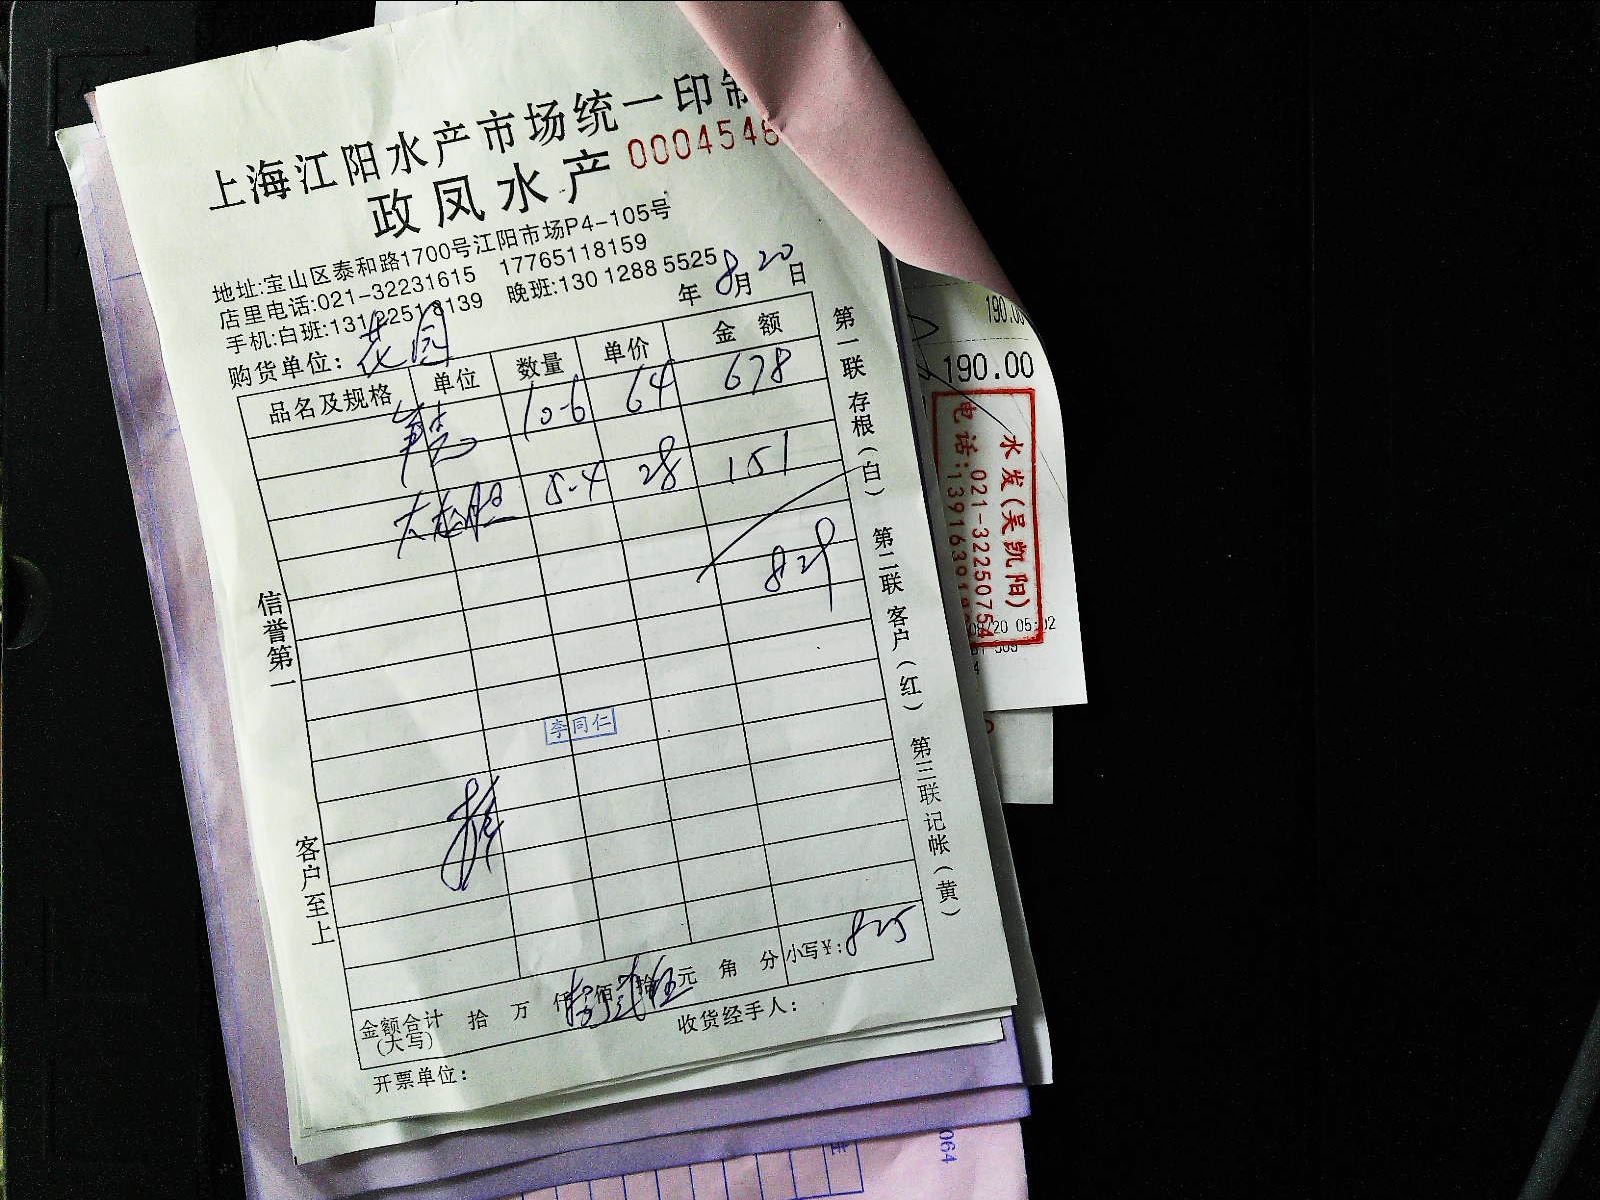 上海江阳水产市场统一印制
政凤水产 0004546
地址:宝山区泰和路1700号江阳市场P4-105号
店里电话:021-32231615 17765118159
手机:白班:131 2251 8139 晚班:130 1288 5525
年 8月 20日
购货单位: 花园
品名及规格 单位 数量 单价 金额
10-6 64 678
大龙胆 5-4 28 151
829
李同仁
信誉第一
客户至上
金额合计 拾 万 仟 佰 拾 元 角 分 小写¥: 825
(大写)
开票单位:
收货经手人:
第一联 存根(白) 第二联 客户(红) 第三联 记帐(黄)
190.00
190.00
水发(吴凯阳)
电话:021-32250754
20 05:02
064